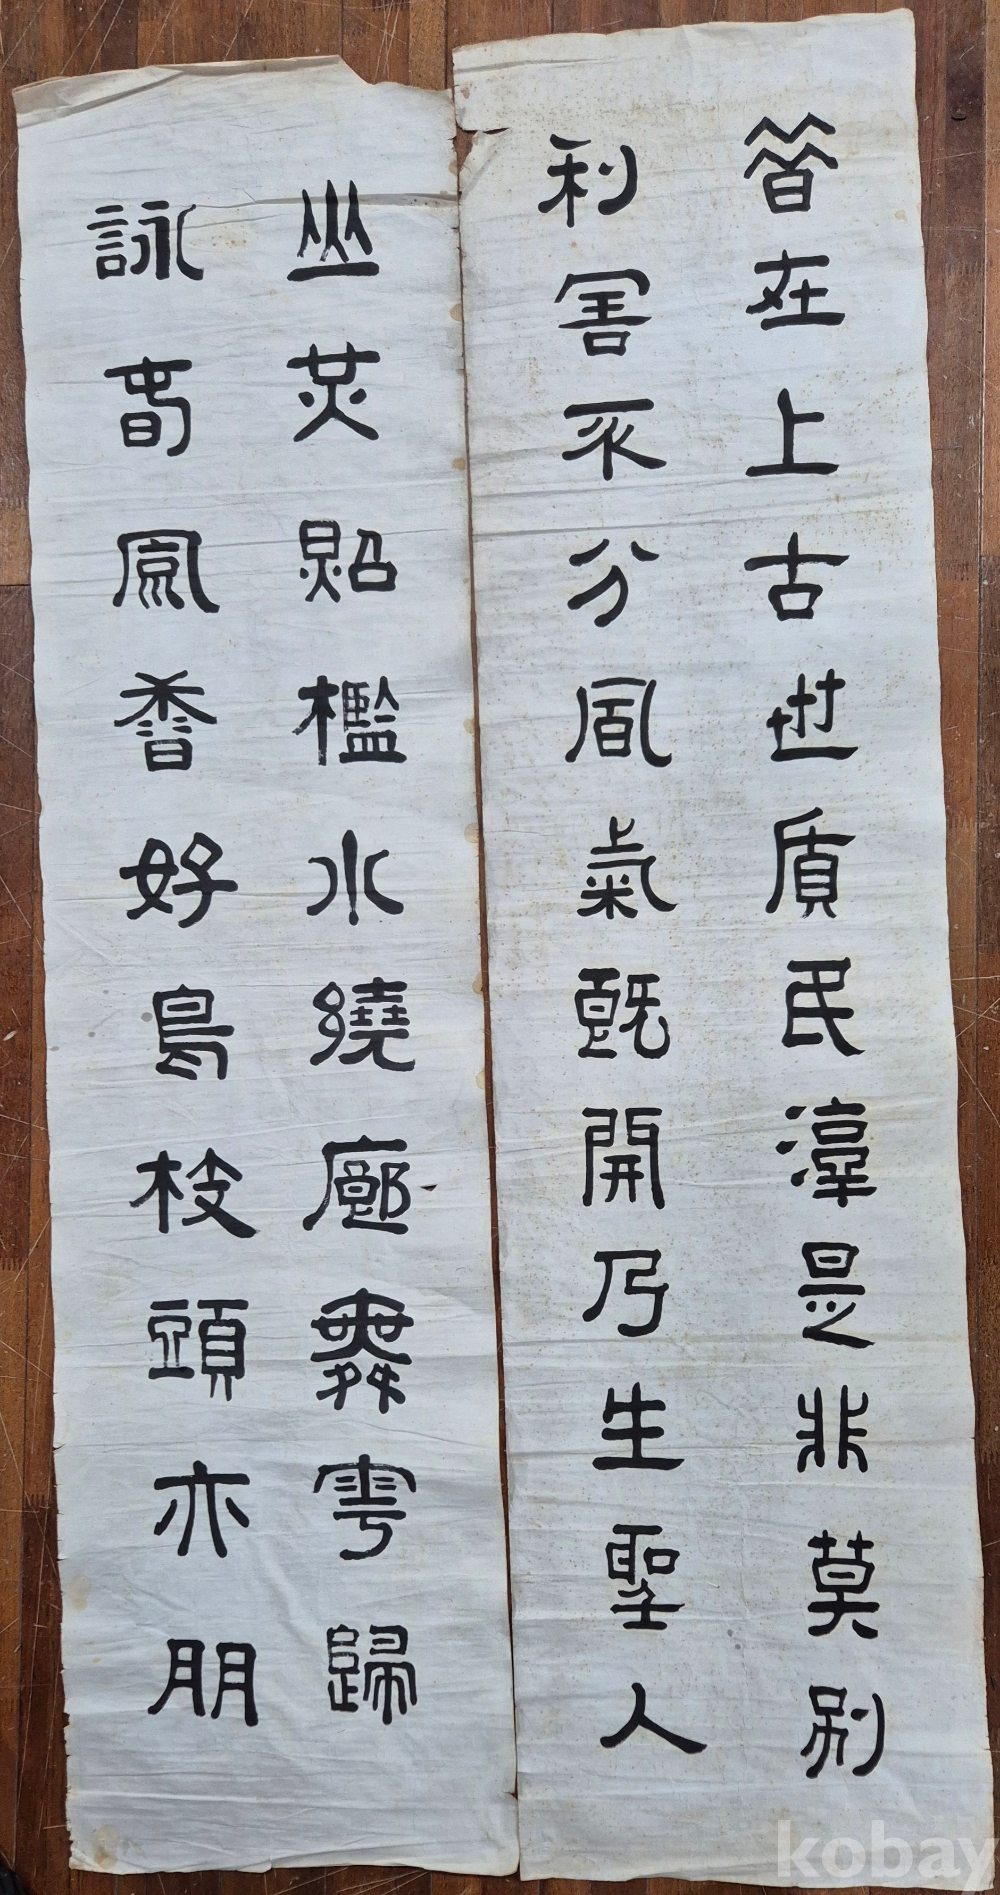 昔在上古世質民淳是非莫別
利害不分風氣既開乃生聖人
山光照檻水繞廊舞雩歸
詠春風香好鳥枝頭亦朋
kobay